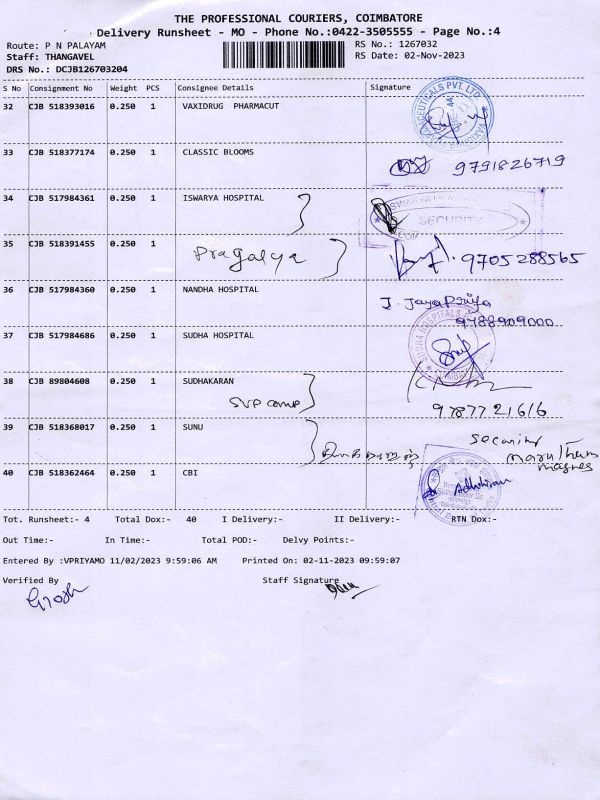 THE PROFESSIONAL COURIERS, COIMBATORE
Delivery Runsheet - MO - Phone No.:0422-3505555 - Page No.:4
Route: P N PALAYAM
RS No.: 1267032
Staff: THANGAVEL
RS Date: 02-Nov-2023
DRS No.: DCJB126703204
S No Consignment No Weight PCS Consignee Details Signature
32 CJB 518393016 0.250 1 VAXIDRUG PHARMACUT
33 CJB 518377174 0.250 1 CLASSIC BLOOMS
9791826719
34 CJB 517984361 0.250 1 ISWARYA HOSPITAL
SECURITY
35 CJB 518391455 0.250 1 Pragalya
9705288565
36 CJB 517984360 0.250 1 NANDHA HOSPITAL
J. Jayapriya
9788909000
37 CJB 517984686 0.250 1 SUDHA HOSPITAL
SUDHA HOSPITALS
38 CJB 89804608 0.250 1 SUDHAKARAN
SVP comp
9787721616
39 CJB 518368017 0.250 1 SUNU
40 CJB 518362464 0.250 1 CBI
Tot. Runsheet:- 4 Total Dox:- 40 I Delivery:- II Delivery:- RTN Dox:-
Out Time:- In Time:- Total POD:- Delvy Points:-
Entered By :VPRIYAMO 11/02/2023 9:59:06 AM Printed On: 02-11-2023 09:59:07
Verified By Staff Signature